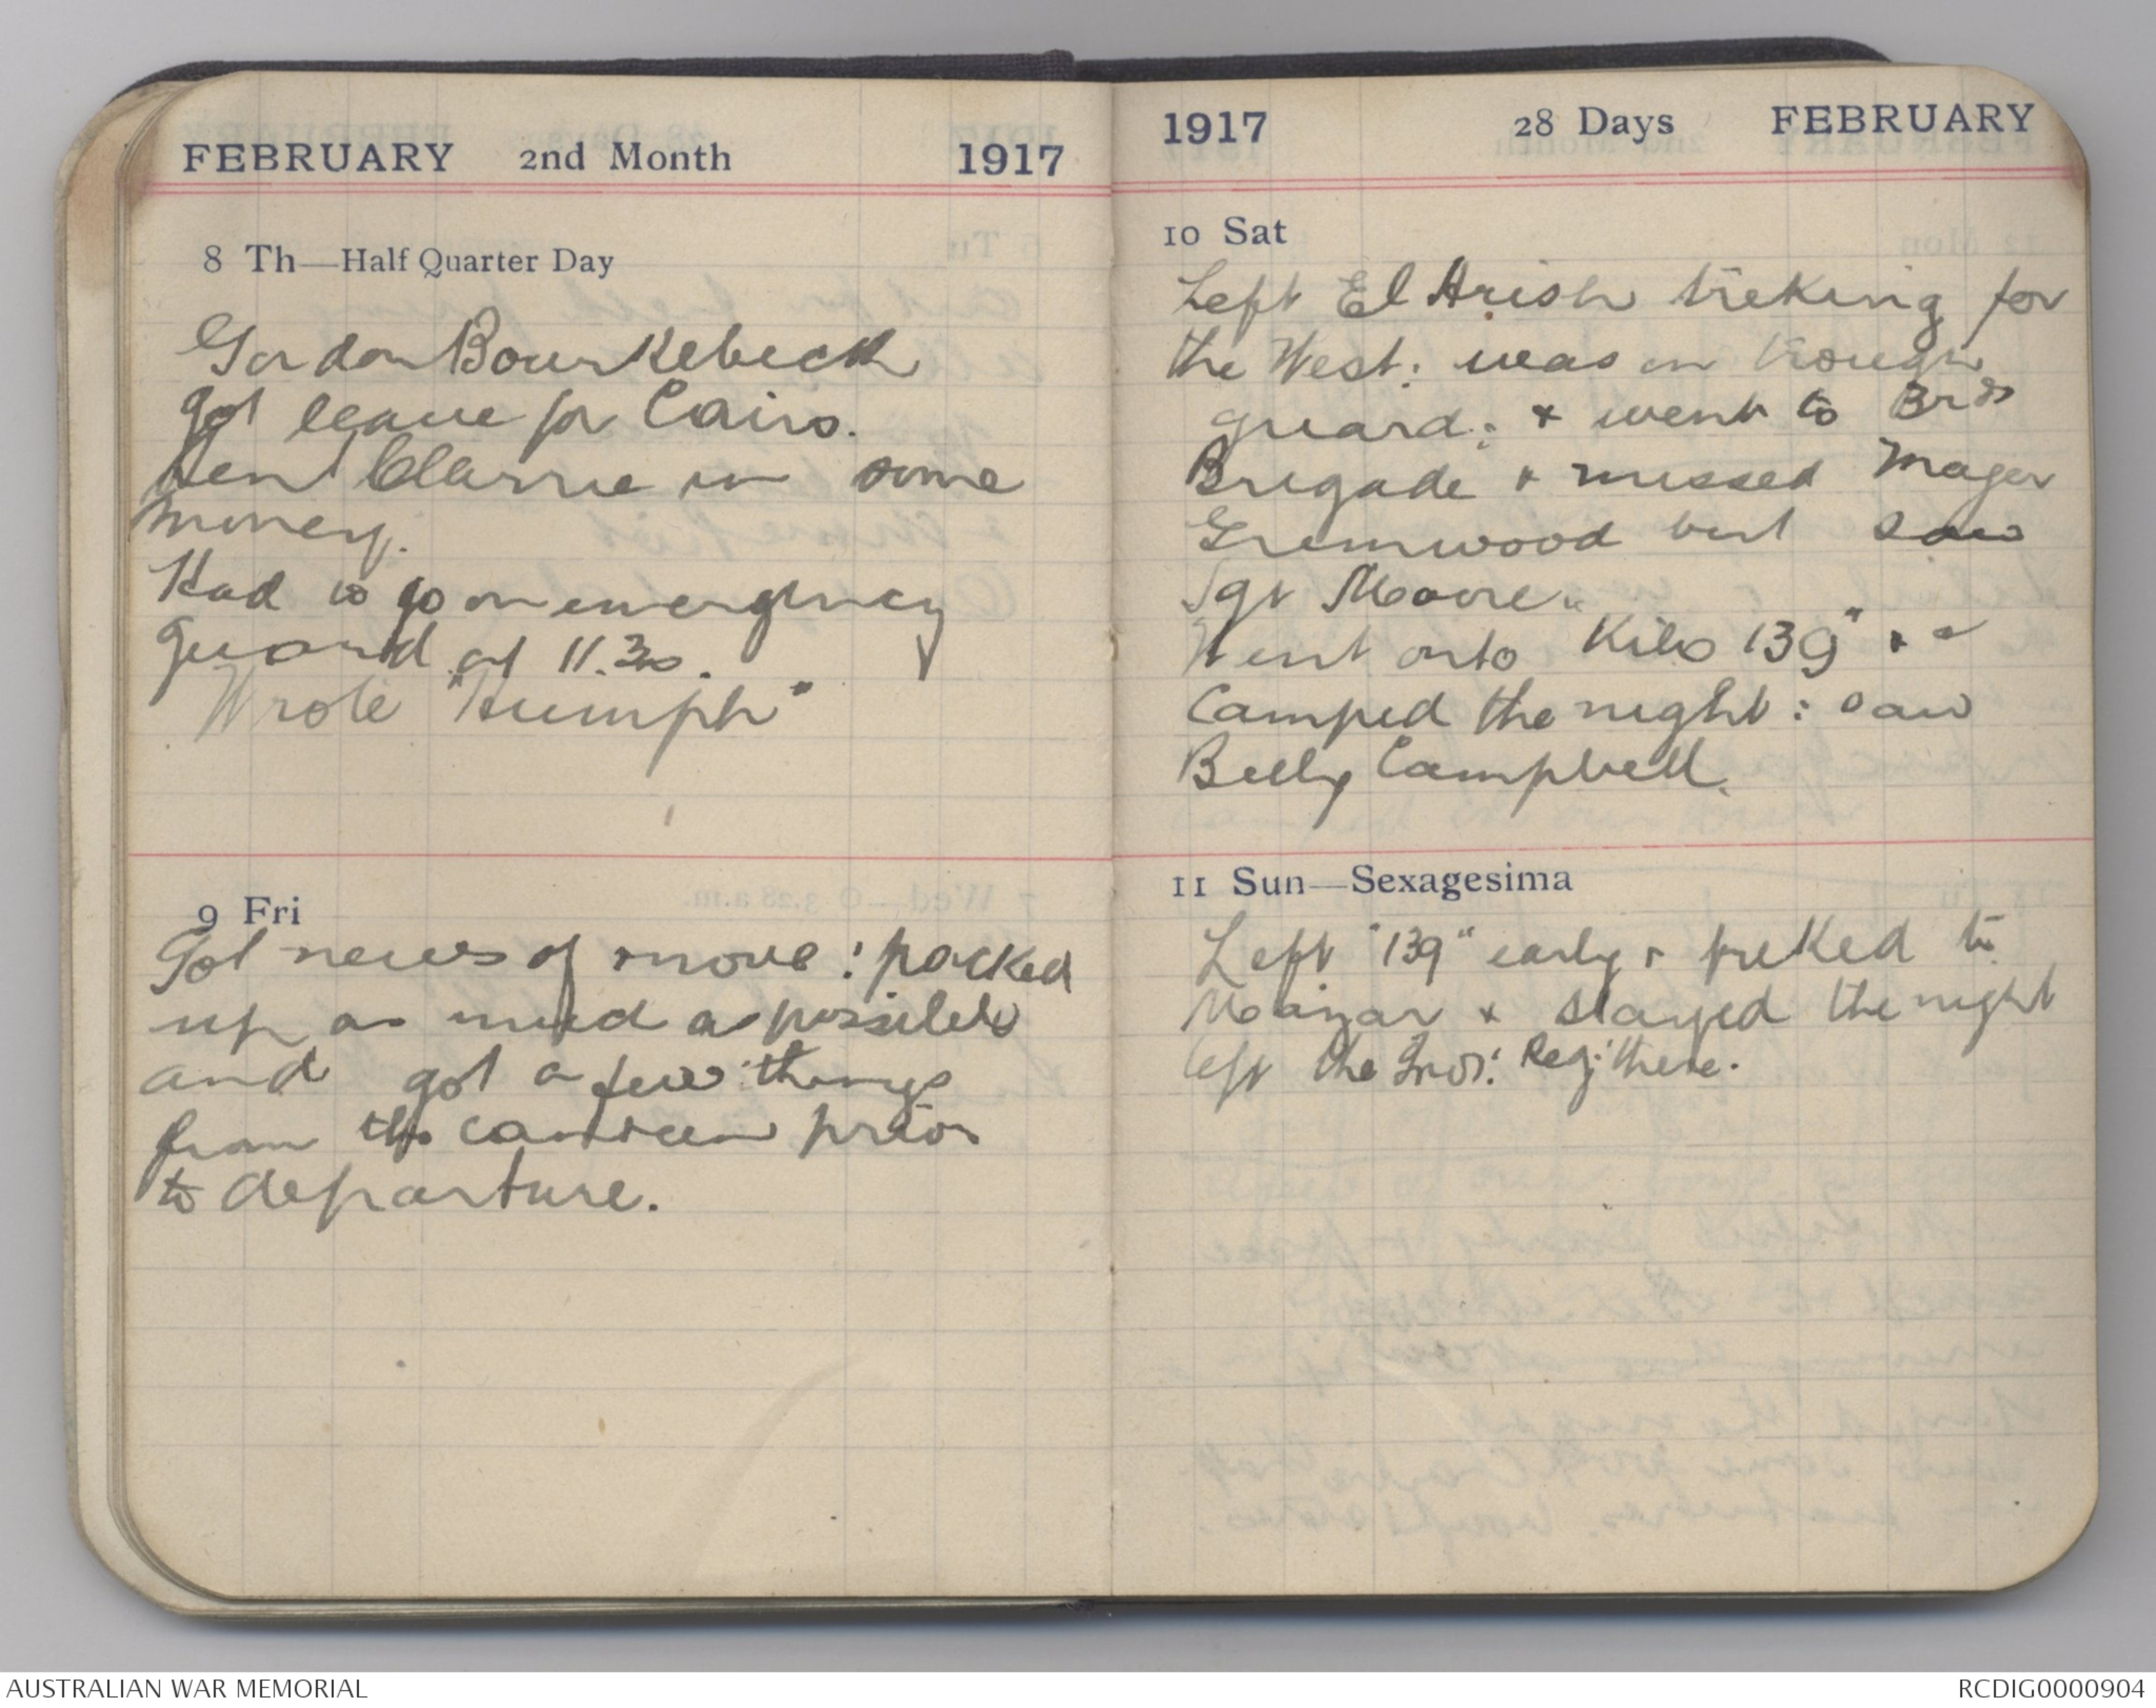 FEBRUARY 2nd Month 1917
8 Th—Half Quarter Day
Gordon Bourkebeck
got leave for Cairo.
Sent Clarrie in some
money.
Had to go on emergency
guard at 11.30.
Wrote "Humph"
9 Fri
Got news of move: packed
up as much as possible
and got a few things
from the canteen prior
to departure.
1917 28 Days FEBRUARY
10 Sat
Left El Arish treking for
the West: was on trough
guard: + went to
Brigade + missed Major
Greenwood but saw
Sgt Moore.
Went onto "Kilo 139" +
Camped the night: saw
Billy Campbell.
11 Sun—Sexagesima
Left "139" early + treked to
Maizar + stayed the night
left the Regt there.
AUSTRALIAN WAR MEMORIAL
RCDIG0000904